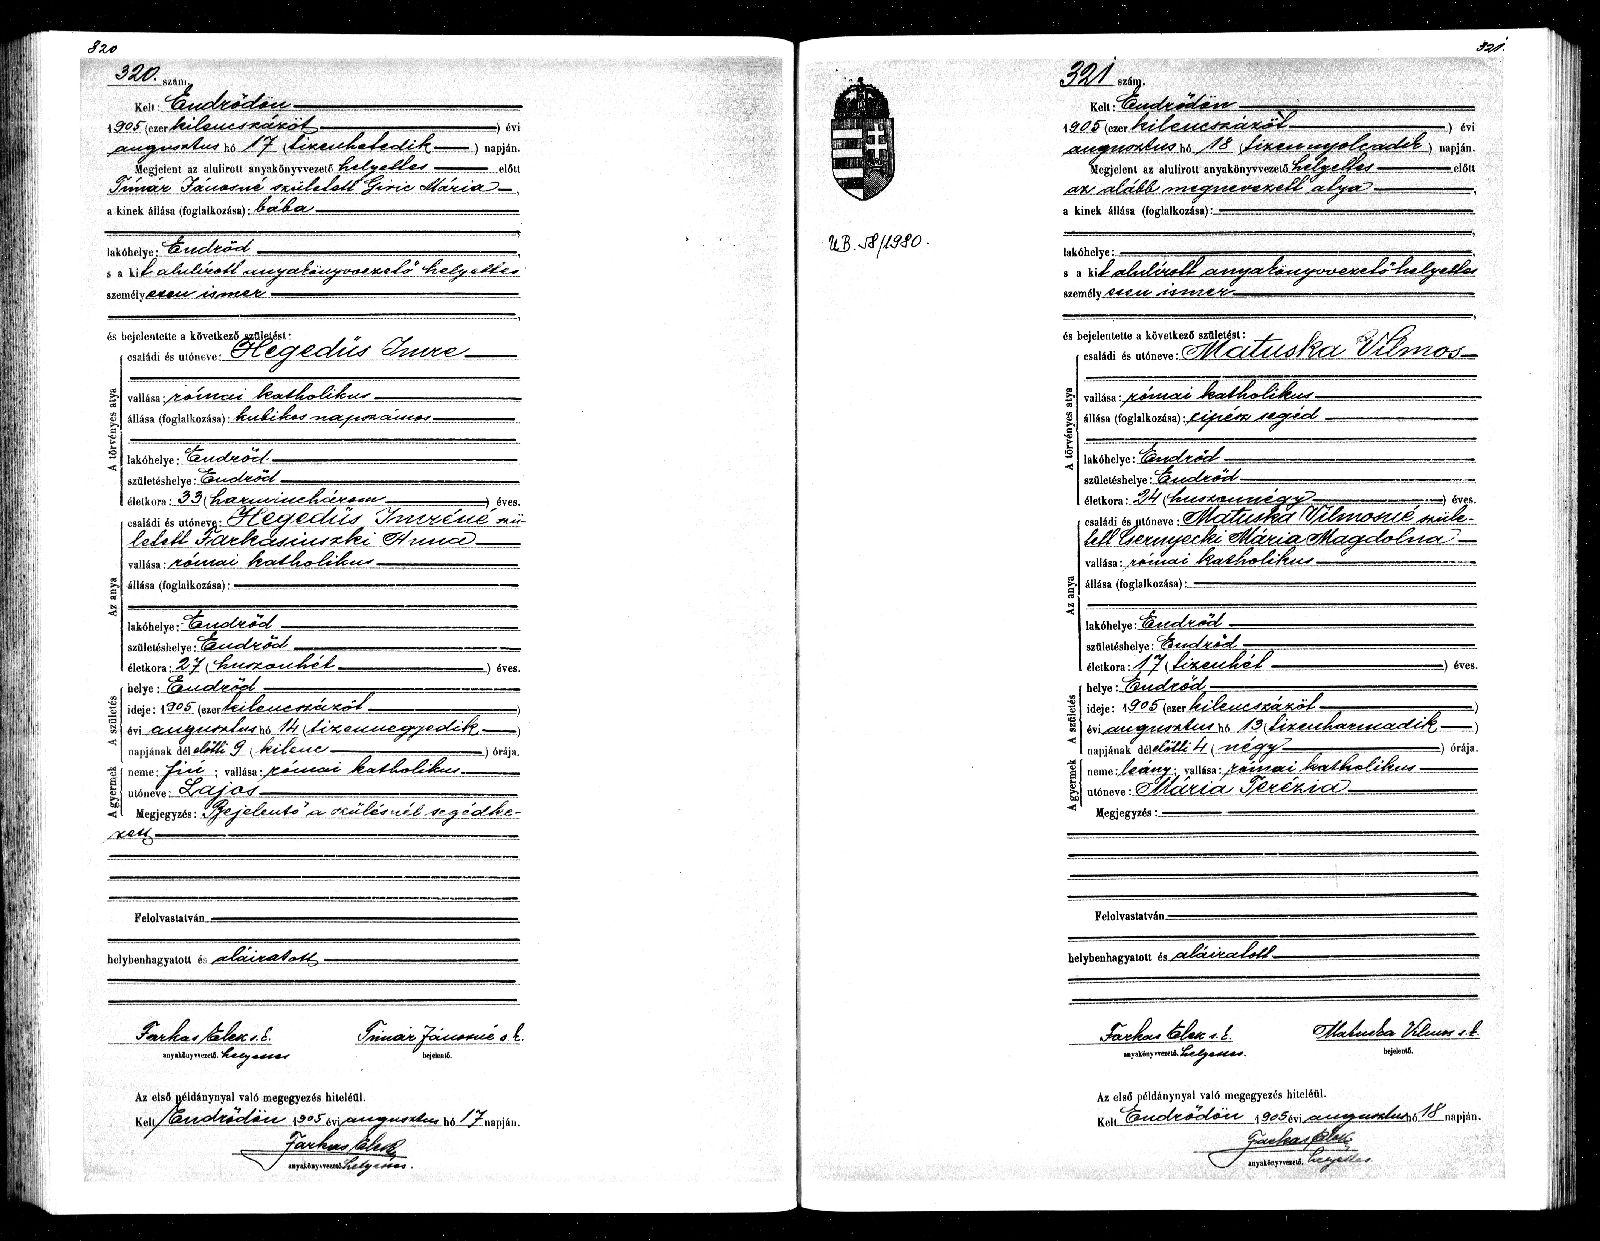 320
320. szám.
Kelt: Endrődön
1905 (ezer kilencszázöt) évi
augusztus hó 17 (tizenhetedik) napján.
Megjelent az alulirott anyakönyvvezető helyettes előtt
Timár Jánosné született Giric Mária,
a kinek állása (foglalkozása): bába
lakóhelye: Endrőd,
s a kit alulírott anyakönyvvezető helyettes
személyesen ismer
és bejelentette a következő születést:
A törvényes atya
családi és utóneve: Hegedüs Imre
vallása: római katholikus
állása (foglalkozása): kubikos napszámos
lakóhelye: Endrőd
születéshelye: Endrőd
életkora: 33 (harminchárom) éves.
Az anya
családi és utóneve: Hegedüs Imréné szü-
letett Farkasinszki Anna
vallása: római katholikus
állása (foglalkozása):
lakóhelye: Endrőd
születéshelye: Endrőd
életkora: 27 (huszonhét) éves.
A születés
helye: Endrőd
ideje: 1905 (ezer kilencszázöt)
évi augusztus hó 14 (tizennegyedik)
napjának dél előtti 9 (kilenc) órája.
A gyermek
neme: fiú; vallása: római katholikus
utóneve: Lajos
Megjegyzés: Bejelentő a szülésnél segédke-
zett
Felolvastatván
helybenhagyatott és aláiratott
Farkas Elek s.k. Timár Jánosné s.k.
anyakönyvvezető. helyettes bejelentő.
Az első példánynyal való megegyezés hiteléül.
Kelt Endrődön 1905 évi augusztus hó 17 napján.
Farkas Elek
anyakönyvvezető. helyettes.
321.
UB. 58/1980.
321 szám.
Kelt: Endrődön
1905 (ezer kilencszázöt) évi
augusztus hó 18 (tizennyolcadik) napján.
Megjelent az alulirott anyakönyvvezető helyettes előtt
az alább megnevezett atya,
a kinek állása (foglalkozása):
lakóhelye:
s a kit alulírott anyakönyvvezető helyettes
személyesen ismer
és bejelentette a következő születést:
A törvényes atya
családi és utóneve: Matuska Vilmos
vallása: római katholikus
állása (foglalkozása): cipész segéd
lakóhelye: Endrőd
születéshelye: Endrőd
életkora: 24 (huszonnégy) éves.
Az anya
családi és utóneve: Matuska Vilmosné szüle-
tett Csernyecki Mária Magdolna
vallása: római katholikus
állása (foglalkozása):
lakóhelye: Endrőd
születéshelye: Endrőd
életkora: 17 (tizenhét) éves.
A születés
helye: Endrőd
ideje: 1905 (ezer kilencszázöt)
évi augusztus hó 13 (tizenharmadik)
napjának dél előtti 4 (négy) órája.
A gyermek
neme: leány; vallása: római katholikus
utóneve: Mária Terézia
Megjegyzés:
Felolvastatván
helybenhagyatott és aláiratott
Farkas Elek s.k. Matuska Vilmos s.k.
anyakönyvvezető. helyettes. bejelentő.
Az első példánynyal való megegyezés hiteléül.
Kelt Endrődön 1905 évi augusztus hó 18 napján.
Farkas Elek
anyakönyvvezető. helyettes